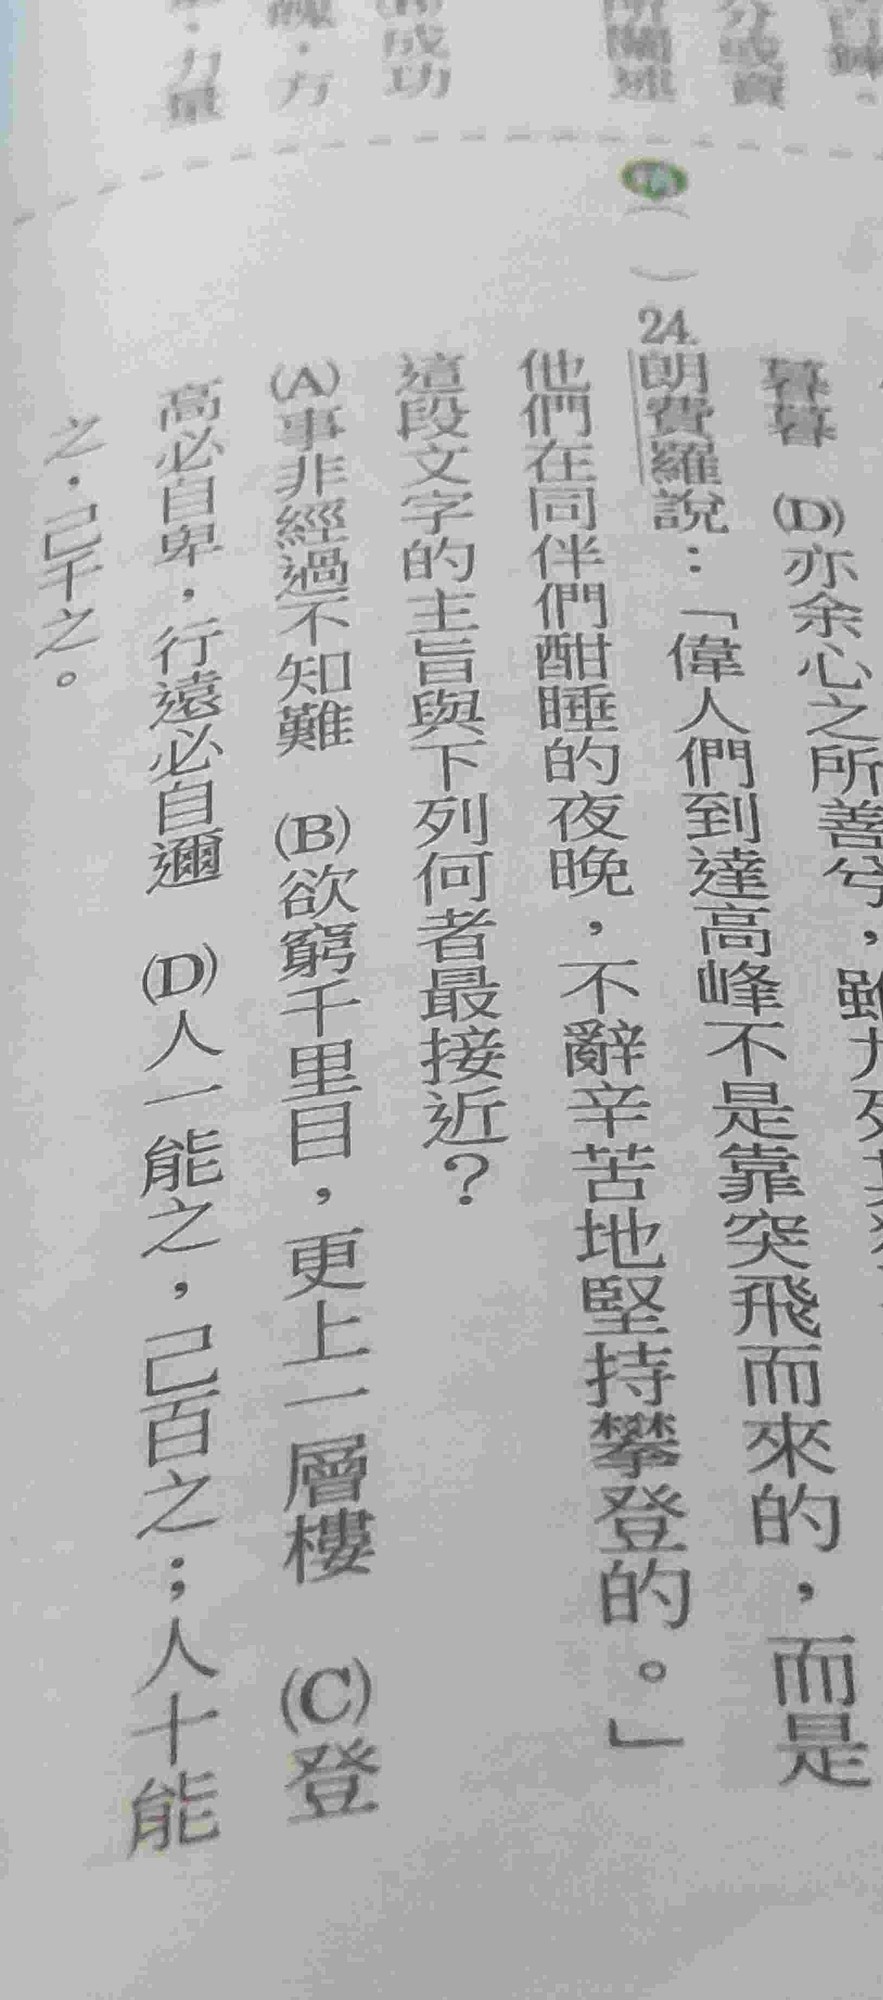 亦余心之所善兮，雖九死其猶
暮暮　(D)
(　)24.朗費羅說：「偉人們到達高峰不是靠突飛而來的，而是
他們在同伴們酣睡的夜晚，不辭辛苦地堅持攀登的。」
這段文字的主旨與下列何者最接近？
(A)事非經過不知難　(B)欲窮千里目，更上一層樓　(C)登
高必自卑，行遠必自邇　(D)人一能之，己百之；人十能
之，己千之。
成功
力量